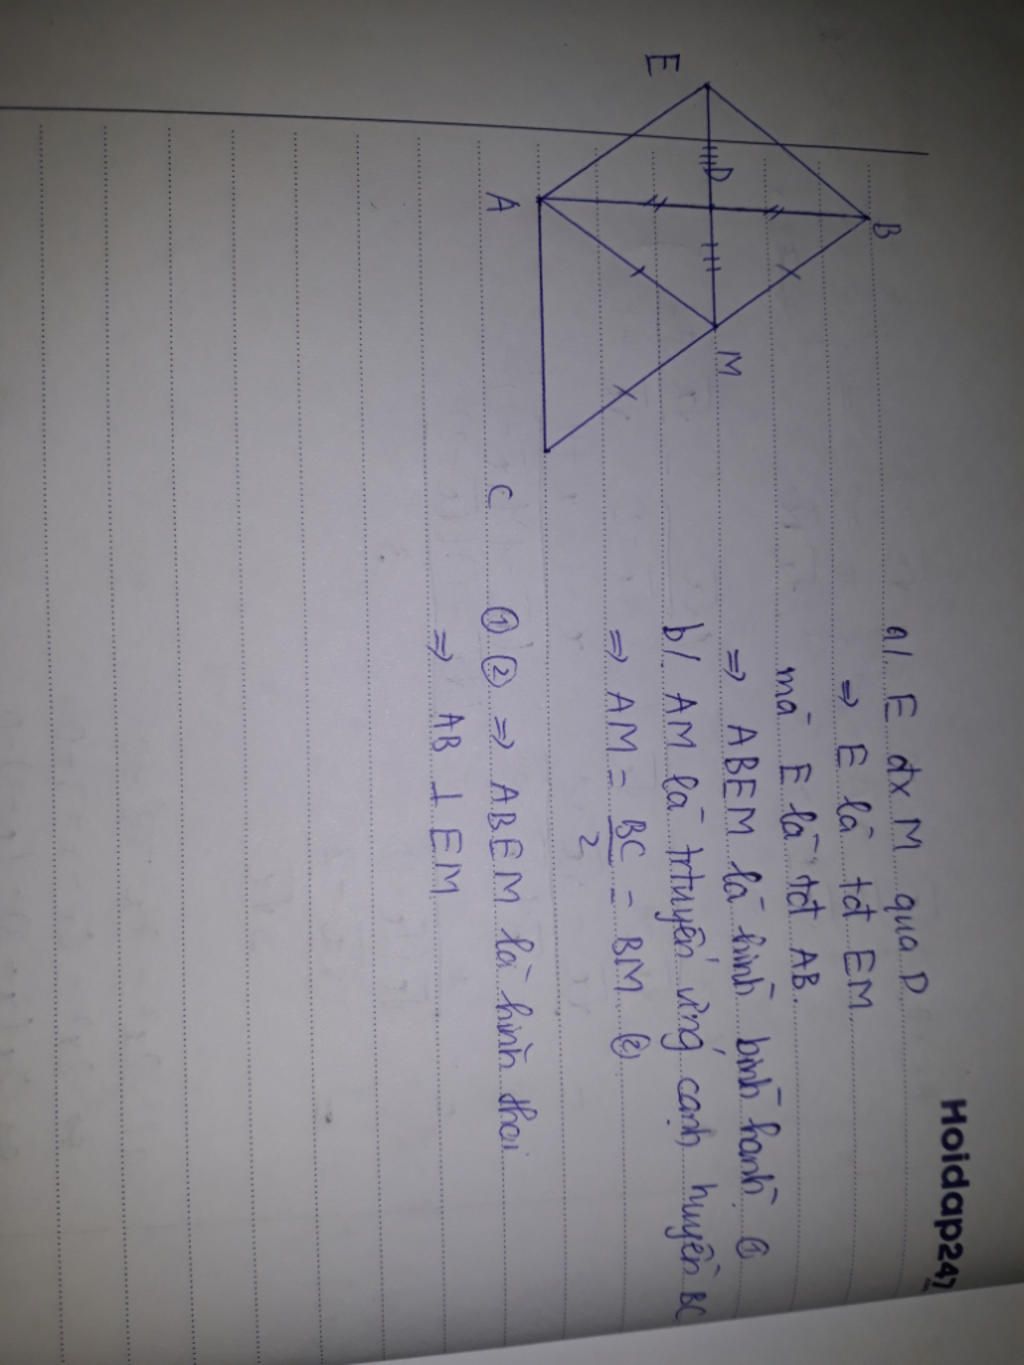 Hoidap247
E
D
B
A
M
C
a/. E đx M qua D
⇒ E là tđ EM
mà E là tđ AB.
⇒ ABEM là hình bình hành. ①
b/. AM là trtuyến ứng cạnh huyền BC
⇒ AM = BC/2 = BM ②
① ② ⇒ ABEM là hình thoi
⇒ AB ⊥ EM